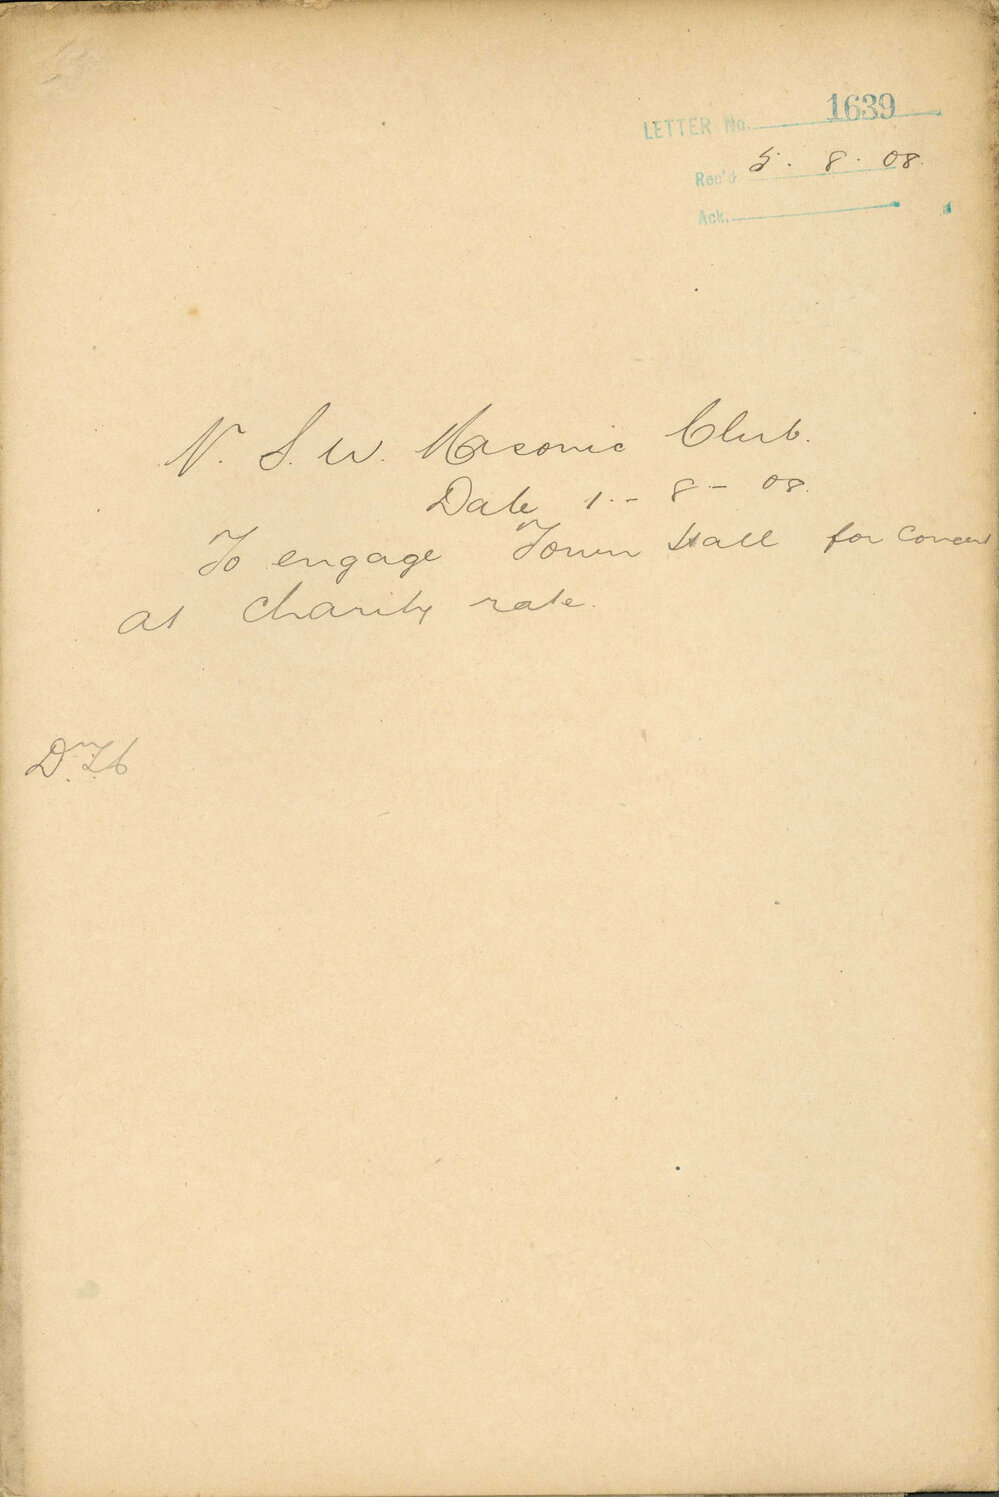 LETTER No. 1639
Rec'd 5. 8. 08.
Ack.
N. S. W. Masonic Club.
Date 1 - 8 - 08.
To engage Town Hall for Concert
at Charity rate.